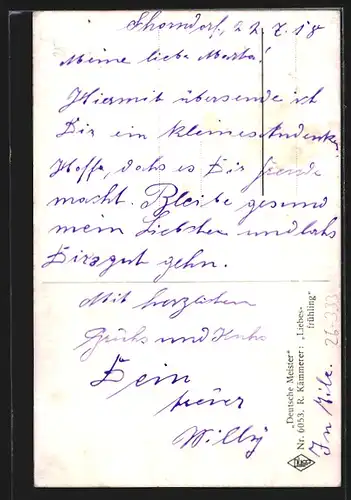 Thorndorf, 22.7.18
Meine liebe Martha!
Hiermit übersende ich
Dir ein kleines Andenken
Hoffe, dahs es Dir freude
macht. Bleibe gesund
mein Liebsten und lahs
Dirs gut gehn.
Mit herzlichen
Gruhs und Kuhs
Dein
treuer
Willy
"Deutsche Meister"
Nr. 6053. R. Kämmerer: "Liebes-
frühling"
In Eile.